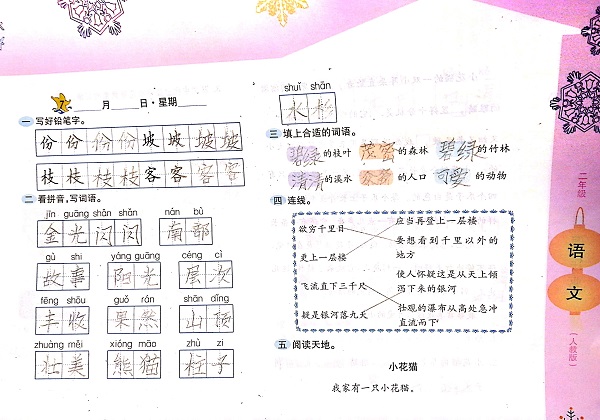 7 月 日·星期
一 写好铅笔字。
份 份 份 份 坡 坡 坡 坡
枝 枝 枝 枝 客 客 客 客
二 看拼音,写词语。
jīn guāng shǎn shǎn nán bù
金 光 闪 闪 南 部
gù shi yáng guāng céng cì
故 事 阳 光 层 次
fēng shōu guǒ rán shān dǐng
丰 收 果 然 山 顶
zhuàng měi xióng māo zhù zi
壮 美 熊 猫 柱 子
shuǐ shān
水 杉
三 填上合适的词语。
碧绿的枝叶 茂密的森林 碧绿的竹林
清清的溪水 的人口 可爱的动物
四 连线。
欲穷千里目
更上一层楼
飞流直下三千尺
疑是银河落九天
应当再登上一层楼
要想看到千里以外的
地方
使人怀疑这是从天上倾
泻下来的银河
壮观的瀑布从高处急冲
直流而下
五 阅读天地。
小花猫
我家有一只小花猫。
二年级
语
文
(人教版)